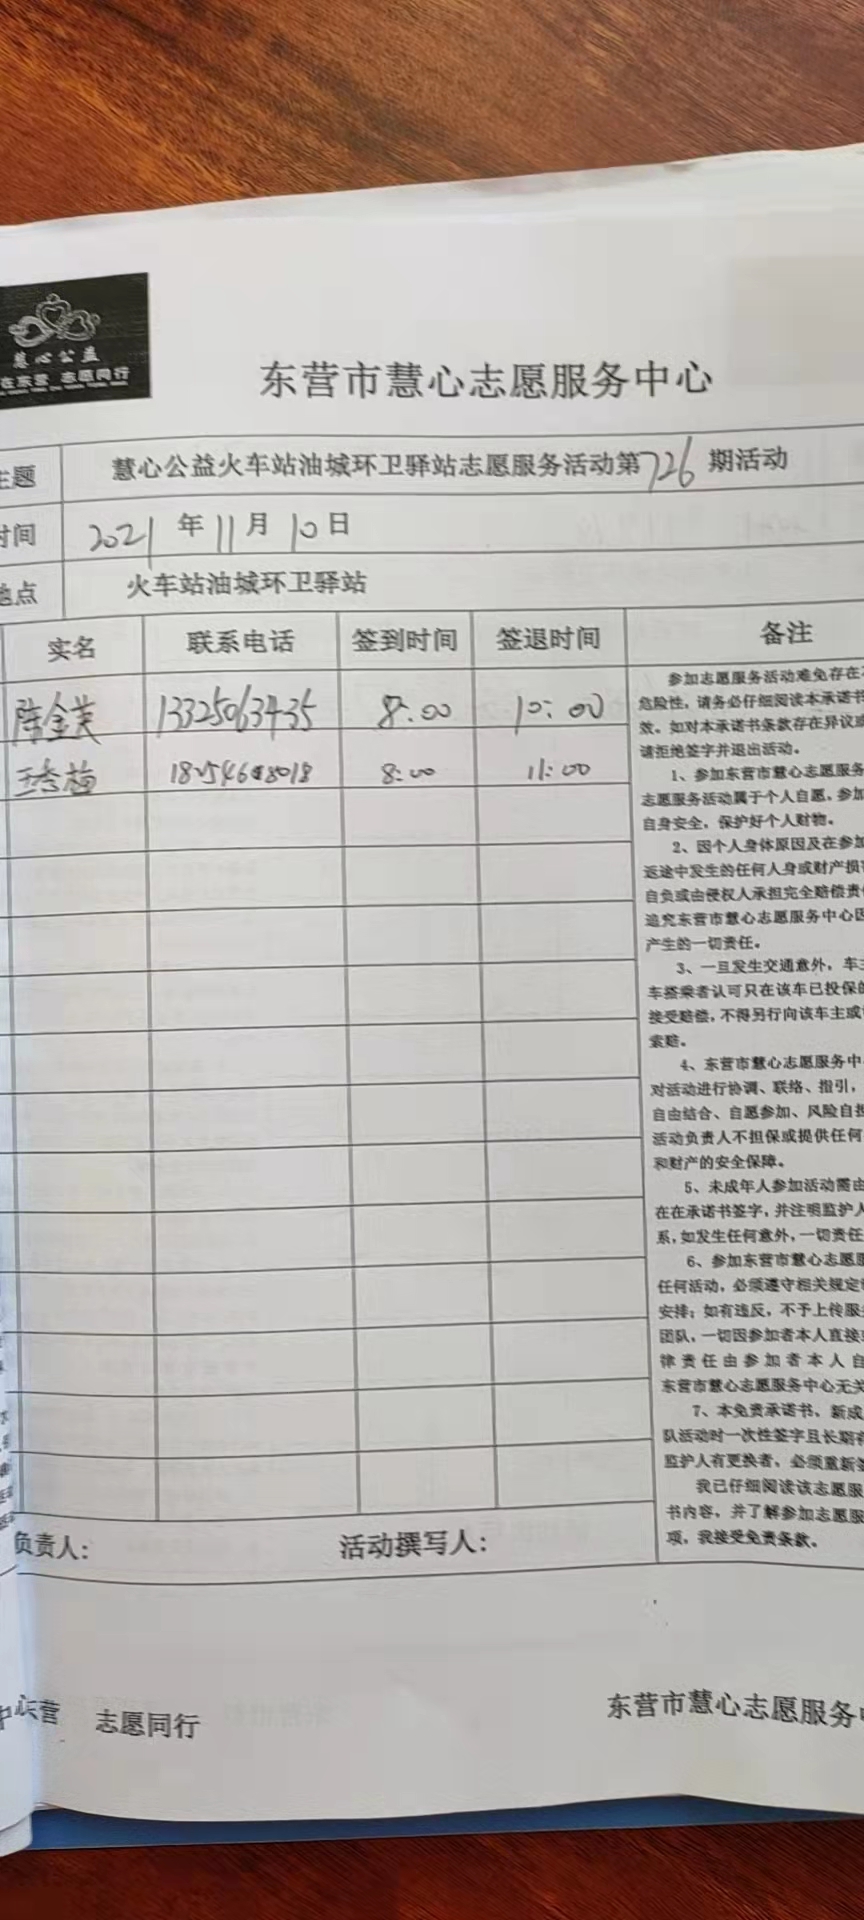 慧心公益
在东营 志愿同行
东营市慧心志愿服务中心
主题 慧心公益火车站油城环卫驿站志愿服务活动第726期活动
时间 2021年11月10日
地点 火车站油城环卫驿站
实名 联系电话 签到时间 签退时间 备注
陈金英 13325063435 8:00 10:00
王秀梅 8:00 11:00
参加志愿服务活动难免存在
危险性，请务必仔细阅读本承诺书
效。如对本承诺书条款存在异议或
请拒绝签字并退出活动。
1、参加东营市慧心志愿服务
志愿服务活动属于个人自愿，参加
自身安全，保护好个人财物。
2、因个人身体原因及在参加
返途中发生的任何人身或财产损
自负或由侵权人承担完全赔偿责
追究东营市慧心志愿服务中心因
产生的一切责任。
3、一旦发生交通意外，车主
车搭乘者认可只在该车已投保的
接受赔偿，不得另行向该车主或
索赔。
4、东营市慧心志愿服务中
对活动进行协调、联络、指引，
自由结合、自愿参加、风险自担
活动负责人不担保或提供任何
和财产的安全保障。
5、未成年人参加活动需由
在在承诺书签字，并注明监护人
系，如发生任何意外，一切责任
6、参加东营市慧心志愿服
任何活动，必须遵守相关规定
安排；如有违反，不予上传服
团队，一切因参加者本人直接
律责任由参加者本人自
东营市慧心志愿服务中心无关
7、本免责承诺书，新成
队活动时一次性签字且长期有
监护人有更换者，必须重新签
我已仔细阅读该志愿服
书内容，并了解参加志愿服
项，我接受免责条款。
负责人： 活动撰写人：
东营 志愿同行 东营市慧心志愿服务中